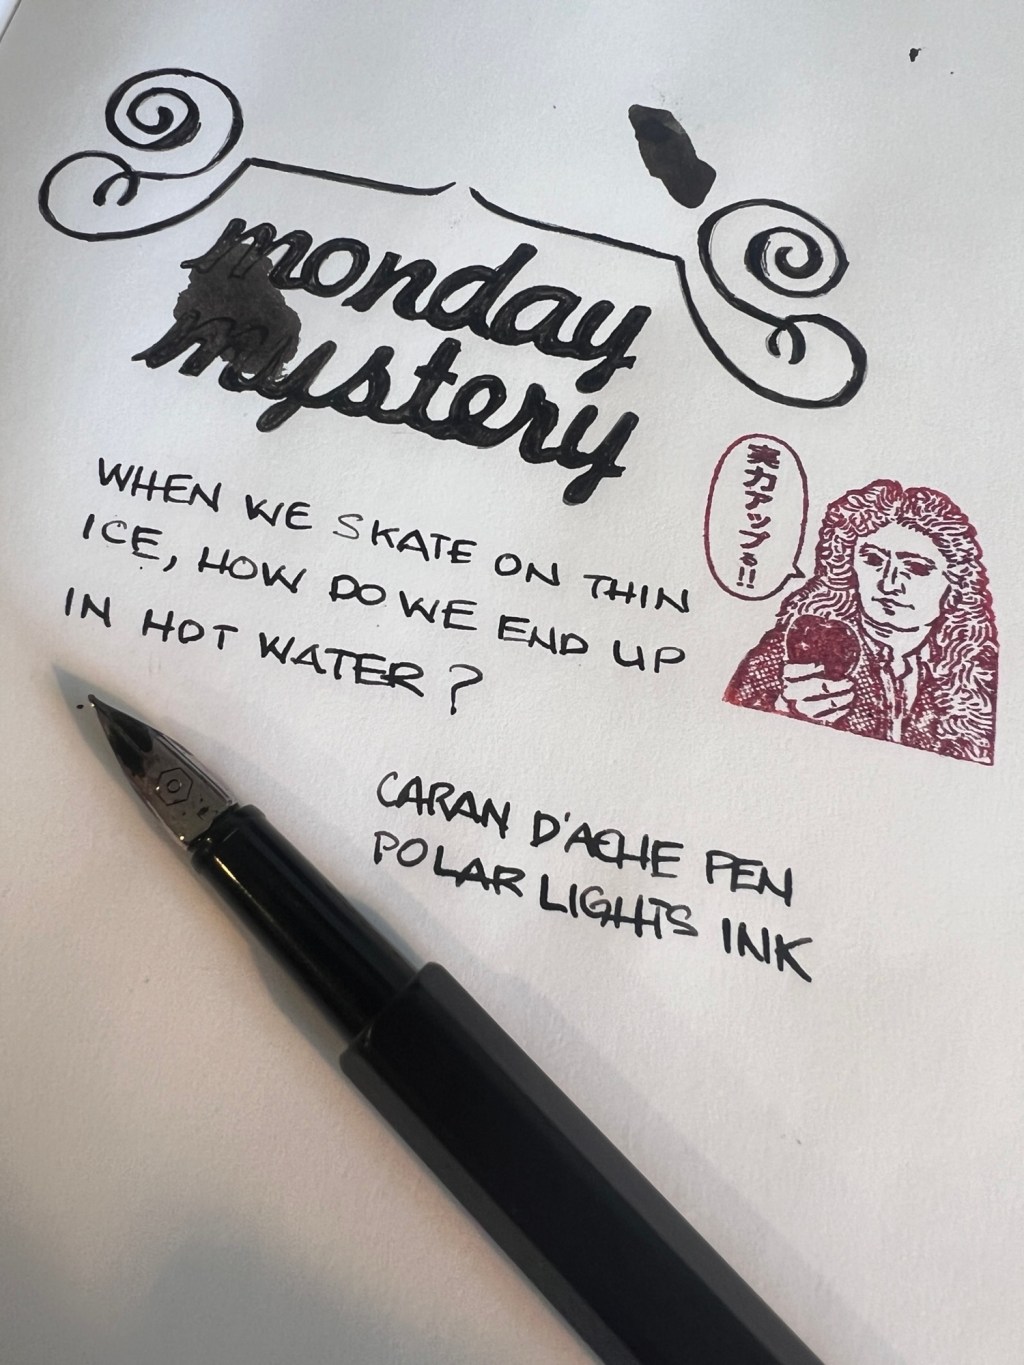 monday
mystery
WHEN WE SKATE ON THIN
ICE, HOW DO WE END UP
IN HOT WATER?
実力アップる!!
CARAN D'ACHE PEN
POLAR LIGHTS INK